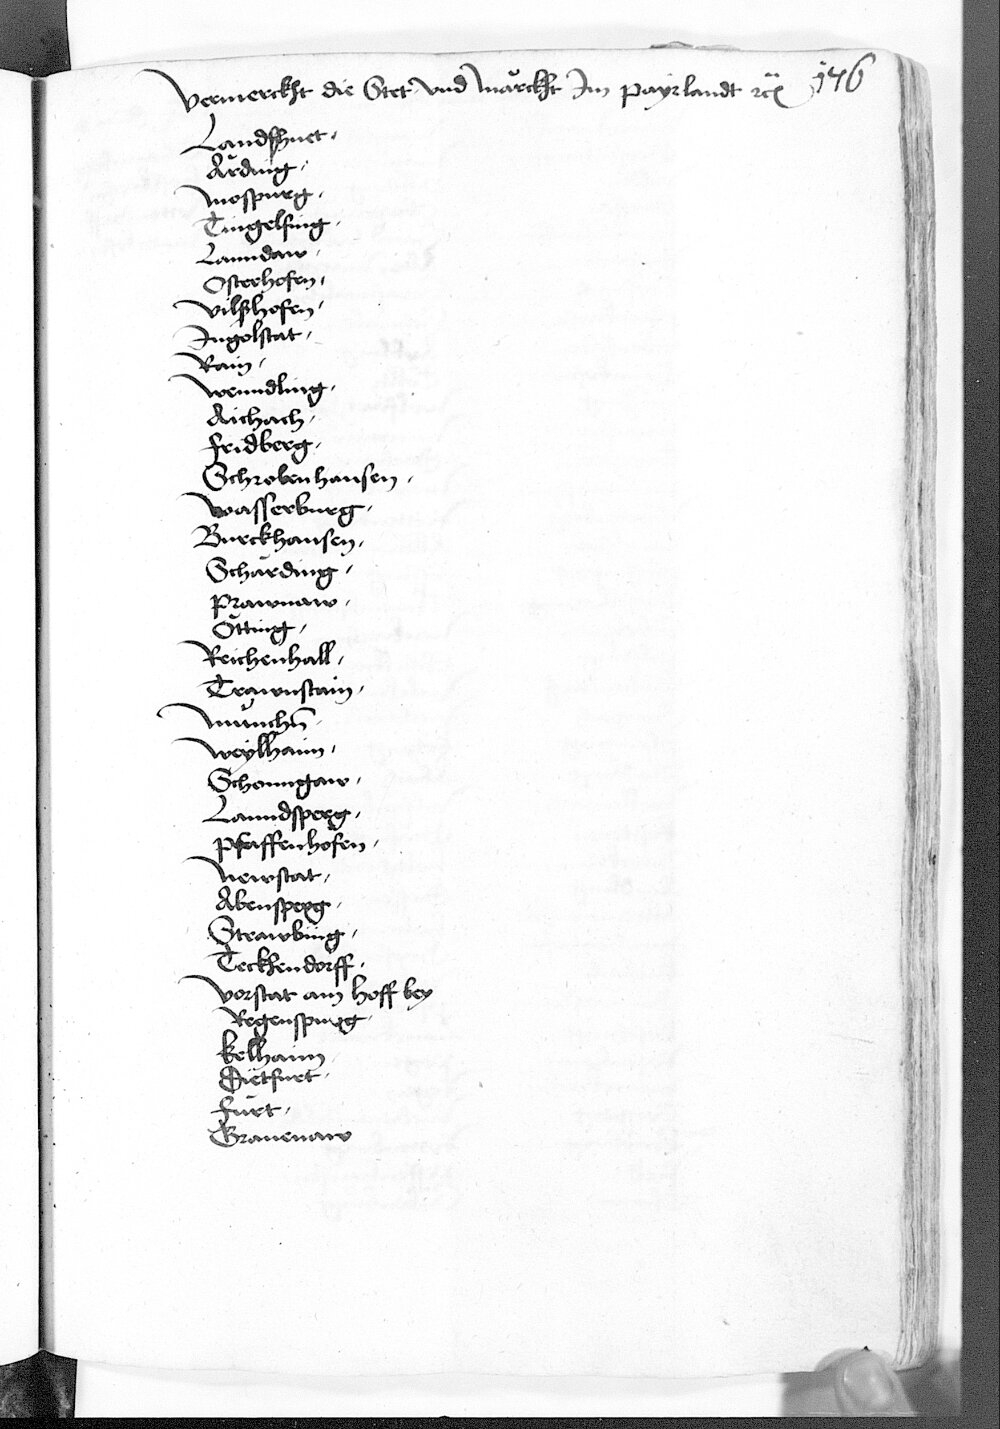 Vermerckht die Stet vnd märckht Im payrlandt rc͛ 176
Landßhuet
Ärding
mospurg
Tingelfing
Lanndaw
Osterhofen
vilßhofen
Ingolstat
Rain
wenndling
Aichach
fridberg
Schrobenhausen
wasserburg
Burckhausen
Schärding
prawnaw
Ötting
Reichenhall
Trawnstain
münchn̄
weylhaim
Schonngaw
Lanndsperg
pfaffenhofen
newstat
Abensperg
Strawbing
Teckhendorff
vorstat am hoff bey
Regenspurg
kelhaim
Dietfurt
fürt
Grauenaw